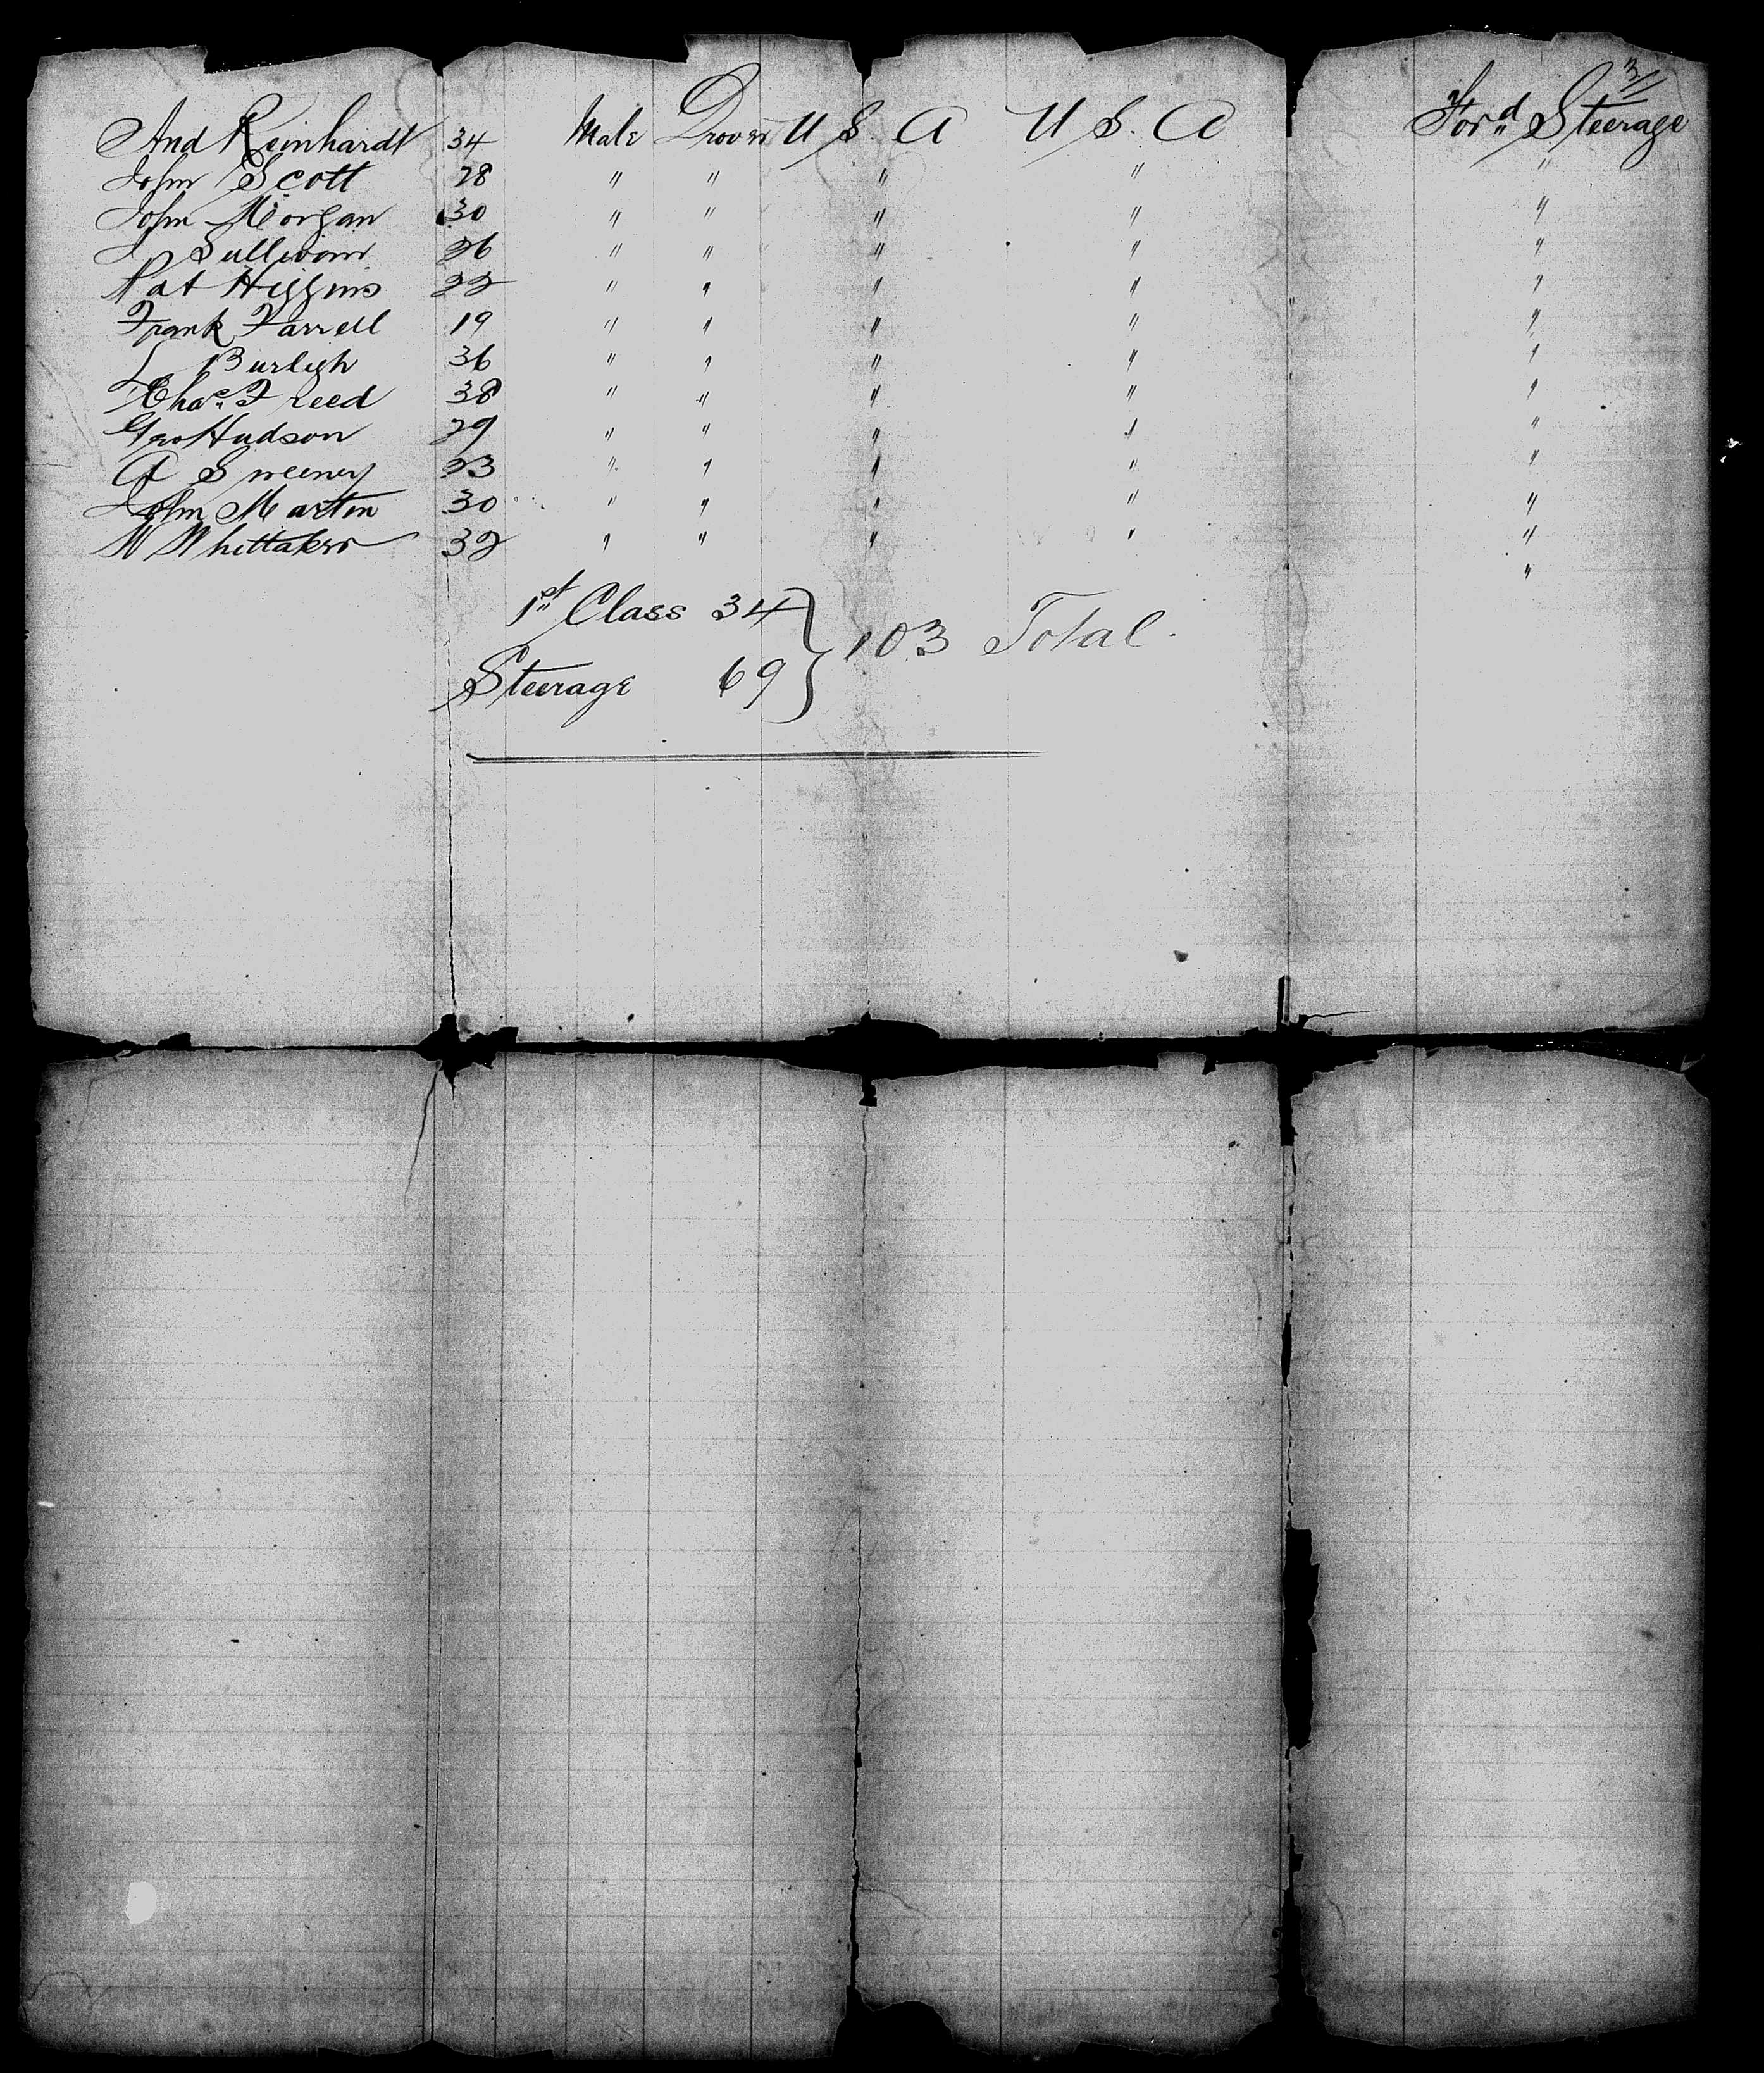 3/
And Reinhardt 34 Male Drover U S. A U S. A For'd Steerage
John Scott 28 " " " " "
John Morgan 30 " " " " "
J Sullivan 26 " " " " "
Pat Higgins 22 " " " " "
Frank Farrell 19 " " " " "
L Burleigh 36 " " " " "
Chas Freed 38 " " " " "
Geo Hudson 29 " " " " "
A Sweeney 23 " " " " "
John Martin 30 " " " " "
W Whittaker 32 " " " " "
1st Class 34
103 Total.
Steerage 69